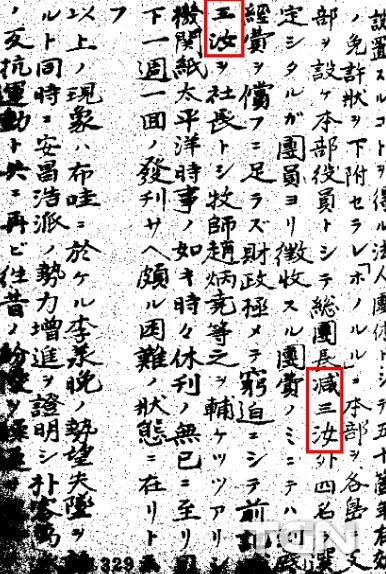 設置スルコトヲ得ル法人團体ニシテ五十箇年有効
ノ免許狀ヲ下附セラレ「ホノルル」ニ本部ヲ各島ニ支
部ヲ設ケ本部役員トシテ総團長減三汝外四名ヲ選
定シタルガ團員ヨリ徴收スル團費ノミニテハ到底
經費ヲ償フニ足ラズ財政極メテ窮迫ニシテ前記
三汝ヲ社長トシ牧師趙炳堯等之ヲ輔ケツツアリシ
機関紙太平洋時事ノ如キ時々休刊ノ無已ニ至リ目
下一週一回ノ發刊サヘ頗ル困難ノ狀態ニ在リト云
フ
以上ノ現象ハ布哇ニ於ケル李承晩ノ勢望失墜ヲ語
ルト同時ニ安昌浩派ノ勢力增進ヲ證明シ朴容萬
ノ反抗運動ト共ニ再ビ往昔ノ紛擾ヲ
329
TCN